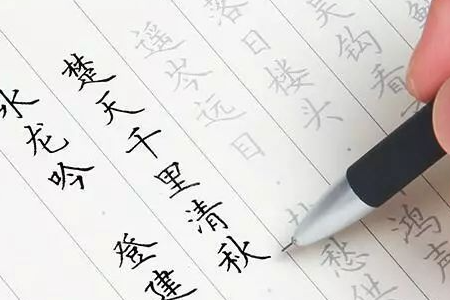 水龙吟 登建
楚天千里清秋
遥岑远目 愁供
落日楼头 鸿声
吴钩看